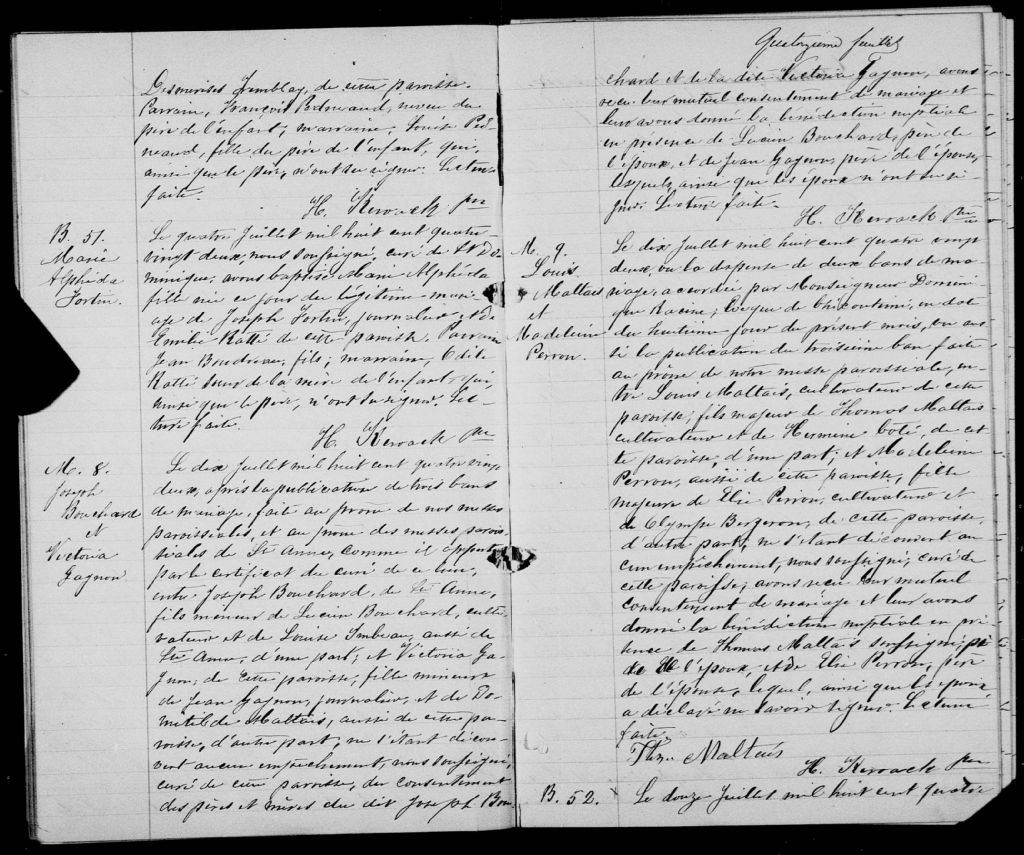 Desmerises Tremblay, de cette paroisse.
Parrain, François Pedneaud, neveu du
père de l'enfant; marraine, Louise Ped-
neaud, fille du père de l'enfant, qui,
ainsi que le père, n'ont su signer. Lecture
faite.
H. Kerouack ptre
B. 51.
Marie
Alphéda
Fortin.
Le quatre Juillet mil huit cent quatre-
vingt deux, nous soussigné, curé de St Do-
minique, avons baptisé Marie Alphéda
fille née ce jour du légitime mari-
age de Joseph Fortin, journalier, et de
Emélie Ratté de cette paroisse. Parrain
Jean Boudreau, fils; marraine, Edile
Ratté soeur de la mère de l'enfant, qui,
ainsi que le père, n'ont su signer. Lec-
ture faite.
H. Kerouack ptre
M. 8.
Joseph
Bouchard
et
Victoria
Gagnon
Le dix Juillet mil huit cent quatre vingt
deux, après la publication de trois bans
de mariage, fait au prône de nos messes
paroissiales, et au prône des messes parois-
siales de Ste Anne, comme il appert
par le certificat du curé de ce lieu,
entre Joseph Bouchard, de Ste Anne,
fils mineur de Lucien Bouchard, culti-
vateur et de Louise Imbeau, aussi de
Ste Anne, d'une part; et Victoria Ga-
gnon, de cette paroisse, fille mineure
de Jean Gagnon, journalier, et de Do-
mitilde Maltais, aussi de cette pa-
roisse, d'autre part, ne s'étant décou-
vert aucun empêchement, nous soussigné,
curé de cette paroisse, du consentement
des pères et mères du dit Joseph Bou-
Quatorzième feuillet
chard et de la dite Victoria Gagnon, avons
reçu leur mutuel consentement de mariage et
leur avons donné la bénédiction nuptiale
en présence de Lucien Bouchard, père de
l'époux, et de Jean Gagnon, père de l'épouse,
lesquels, ainsi que les époux n'ont su si-
gner. Lecture faite.
H. Kerouack Ptre
M. 9.
Louis
Maltais
et
Madeleine
Perron.
Le dix Juillet mil huit cent quatre vingt
deux, vu la dispense de deux bans de ma-
riage, accordée par Monseigneur Domini-
que Racine, Evêque de Chicoutimi, en date
du huitième jour du présent mois, vu aus-
si la publication du troisième ban faite
au prône de notre messe paroissiale, en-
tre Louis Maltais, cultivateur de cette
paroisse, fils majeur de Thomas Maltais
cultivateur et de Hermine Coté, de cet-
te paroisse, d'une part; et Madeleine
Perron, aussi de cette paroisse, fille
majeure de Elie Perron, cultivateur et
de Olympe Bergeron, de cette paroisse,
d'autre part; ne s'étant découvert au-
cun empêchement, nous soussigné, curé de
cette paroisse, avons reçu leur mutuel
consentement de mariage et leur avons
donné la bénédiction nuptiale en pré-
sence de Thomas Maltais soussigné, père
de l'époux, et de Elie Perron, père
de l'épouse, lequel, ainsi que les époux
a déclaré ne savoir signer. Lecture
faite.
Maltais
H. Kerouack ptre
B. 52.
Le douze Juillet mil huit cent quatre